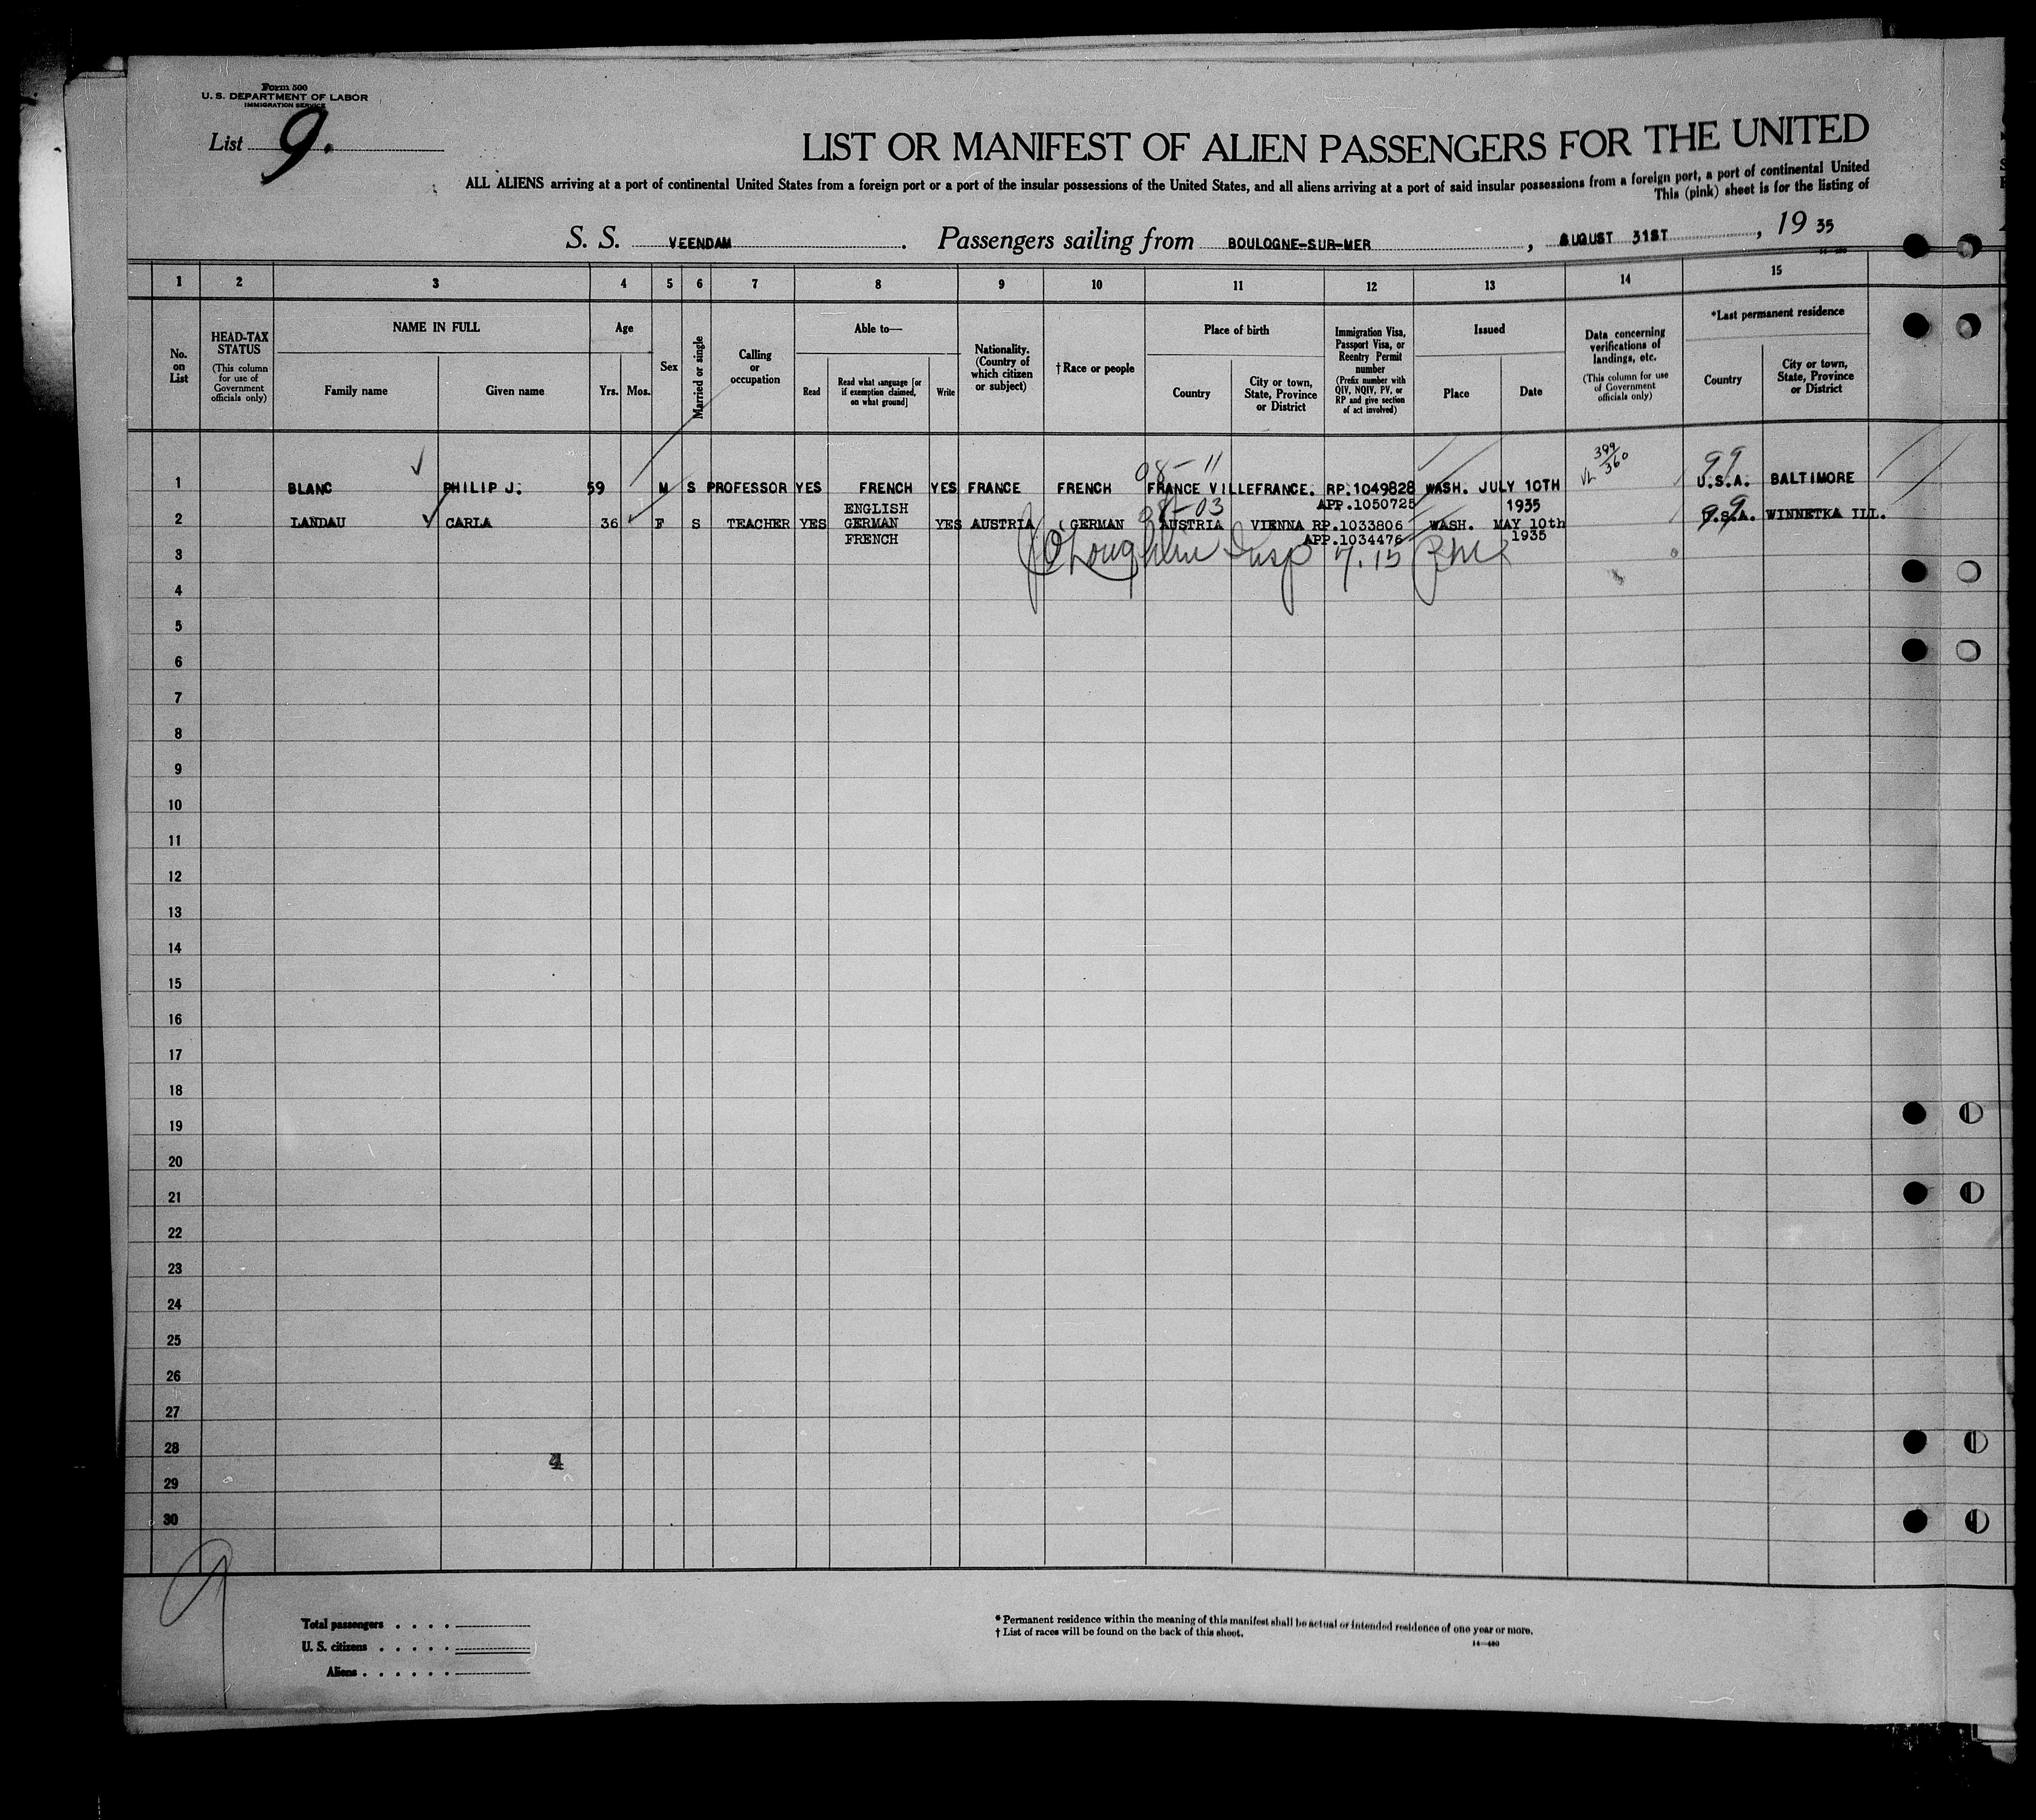 Form 500
U. S. DEPARTMENT OF LABOR
IMMIGRATION SERVICE
List 9.
LIST OR MANIFEST OF ALIEN PASSENGERS FOR THE UNITED
ALL ALIENS arriving at a port of continental United States from a foreign port or a port of the insular possessions of the United States, and all aliens arriving at a port of said insular possessions from a foreign port, a port of continental United
This (pink) sheet is for the listing of
S. S. VEENDAM. Passengers sailing from BOULOGNE-SUR-MER, AUGUST 31ST, 19 35
1 2 3 4 5 6 7 8 9 10 11 12 13 14 15
No. on List
HEAD-TAX STATUS
(This column for use of Government officials only)
NAME IN FULL
Family name
Given name
Age
Yrs.
Mos.
Sex
Married or single
Calling or occupation
Able to—
Read
Read what language [or if exemption claimed, on what ground]
Write
Nationality. (Country of which citizen or subject)
†Race or people
Place of birth
Country
City or town, State, Province or District
Immigration Visa, Passport Visa, or Reentry Permit number
(Prefix number with QIV, NQIV, PV, or RP and give section of act involved)
Issued
Place
Date
Data concerning verifications of landings, etc.
(This column for use of Government officials only)
*Last permanent residence
Country
City or town, State, Province or District
98-11
399/360
99
1 BLANC PHILIP J. 59 M S PROFESSOR YES FRENCH YES FRANCE FRENCH FRANCE VILLEFRANCE. RP.1049828 WASH. JULY 10TH U.S.A. BALTIMORE
ENGLISH APP.1050725 1935
98-03
99
2 LANDAU CARLA 36 F S TEACHER YES GERMAN YES AUSTRIA GERMAN AUSTRIA VIENNA RP.1033806 WASH. MAY 10th U.S.A. WINNETKA ILL.
FRENCH APP.1034476 1935
3 O'Loughlin Insp 7.15
4
5
6
7
8
9
10
11
12
13
14
15
16
17
18
19
20
21
22
23
24
25
26
27
28
4
29
30
9
Total passengers . . . .
U. S. citizens . . . . .
Aliens . . . . . .
* Permanent residence within the meaning of this manifest shall be actual or intended residence of one year or more.
† List of races will be found on the back of this sheet.
14—480